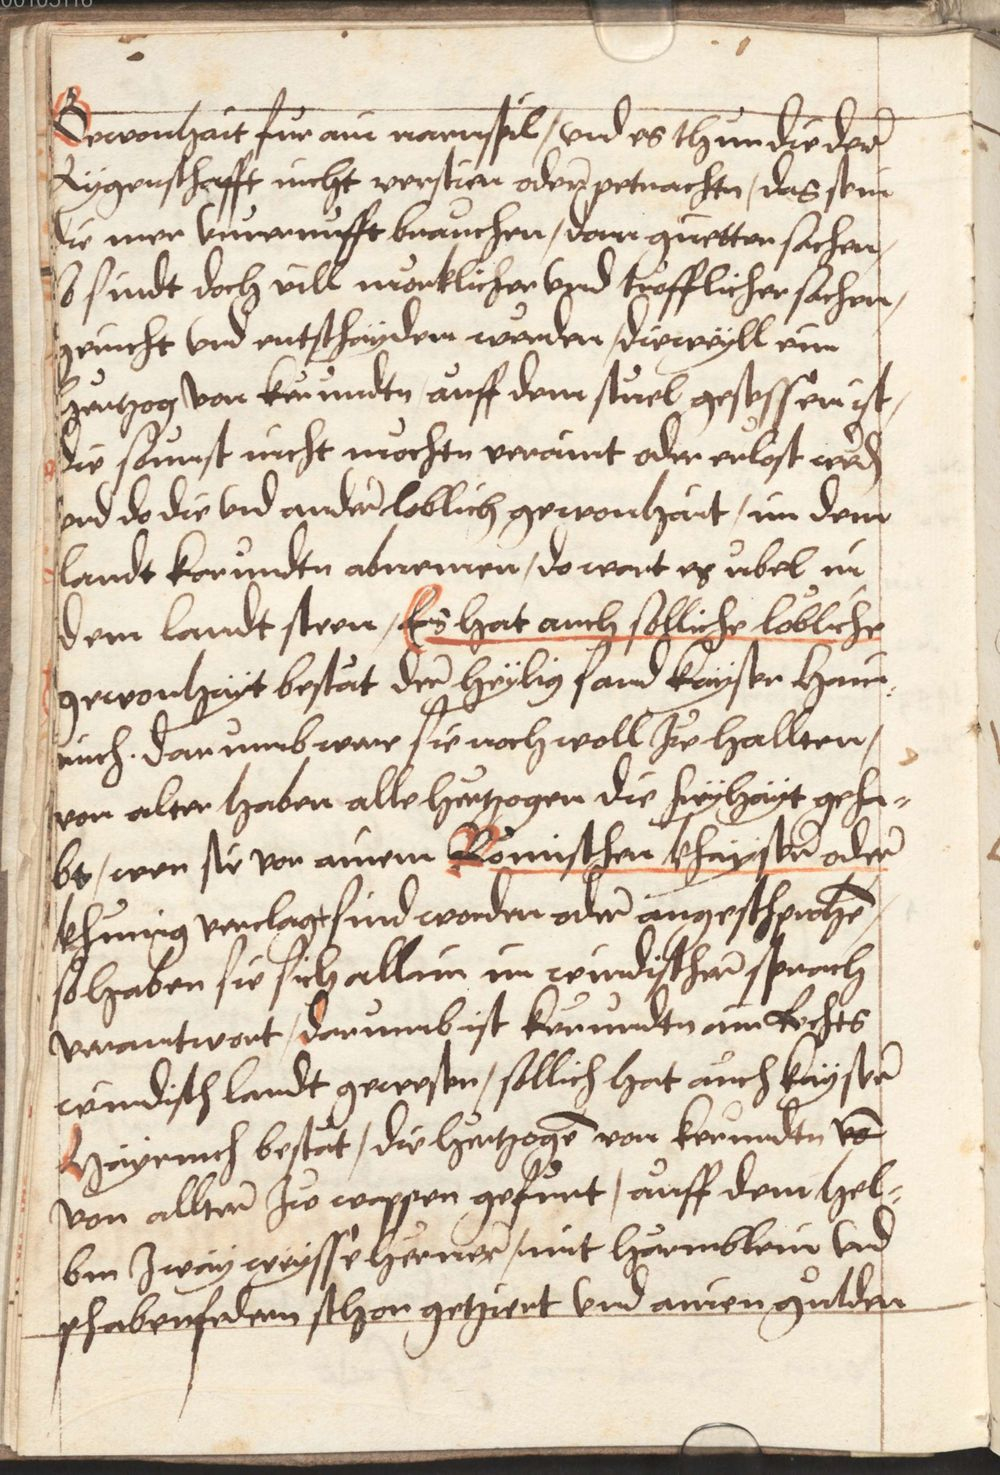 00105118
Gewonhait fur ain narnspil / vnd es thun die der
Aygenschafft nicht versten oder petrachtn / das sein
die mer vnvernufft brauchen / dann guetten sachen /
so sindt doch vill morklicher vnd trefflicher sachen /
gericht vnd entschayden werden / dieweyll ein
hertzog von kerundtn / auff dem stuel gesessen ist /
die sounst nicht mochtn veraint oder erlost werden
vnd do die vnd ander loblich gewonhait / in dem
landt karundtn abnemen / do wart es ubel in
dem landt sten / Es hat auch solliche lobliche
gewonhayt bestat der heylig sand kayser hain-
rich . darumb war sie noch woll zu hallten /
von alter haben alle hertzogen die freyhayt geha-
bt / wen sie von ainem Romischen khayser oder
khunig verclagt sind worden oder angesprochen /
so haben sie sich allein in windischer sprach
verantwort / darumb ist kerundtn ain Rechts
windisch landt gewesen / sollich hat auch kayser
Hayrrich bestat / die hertzogen von kerundtn von
von allter Ire wappen gefurt / auff dem hel-
bm zway weysse herner / mit harmblein vnd
phabenfedern schon getziert vnd ainen gulden